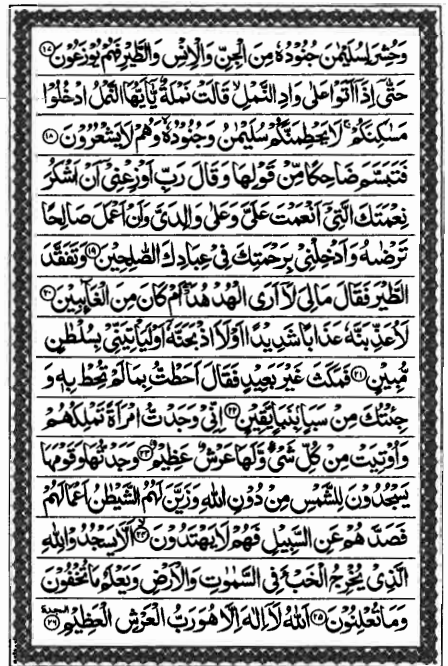 وَحُشِرَ لِسُلَيْمٰنَ جُنُوْدُهٗ مِنَ الْجِنِّ وَالْاِنْسِ وَالطَّيْرِ فَهُمْ يُوْزَعُوْنَ ۝۱۷
حَتّٰٓى اِذَآ اَتَوْا عَلٰى وَادِ النَّمْلِ ۙ قَالَتْ نَمْلَةٌ يّٰٓاَيُّهَا النَّمْلُ ادْخُلُوْا
مَسٰكِنَكُمْ ۚ لَا يَحْطِمَنَّكُمْ سُلَيْمٰنُ وَجُنُوْدُهٗ ۙ وَهُمْ لَا يَشْعُرُوْنَ ۝۱۸
فَتَبَسَّمَ ضَاحِكًا مِّنْ قَوْلِهَا وَقَالَ رَبِّ اَوْزِعْنِىْٓ اَنْ اَشْكُرَ
نِعْمَتَكَ الَّتِىْٓ اَنْعَمْتَ عَلَىَّ وَعَلٰى وَالِدَىَّ وَاَنْ اَعْمَلَ صَالِحًا
تَرْضٰىهُ وَاَدْخِلْنِىْ بِرَحْمَتِكَ فِىْ عِبَادِكَ الصّٰلِحِيْنَ ۝۱۹ وَتَفَقَّدَ
الطَّيْرَ فَقَالَ مَا لِىَ لَآ اَرَى الْهُدْهُدَ ۖ اَمْ كَانَ مِنَ الْغَآئِبِيْنَ ۝۲۰
لَاُعَذِّبَنَّهٗ عَذَابًا شَدِيْدًا اَوْ لَاَا۟ذْبَحَنَّهٗٓ اَوْ لَيَاْتِيَنِّىْ بِسُلْطٰنٍ
مُّبِيْنٍ ۝۲۱ فَمَكَثَ غَيْرَ بَعِيْدٍ فَقَالَ اَحَطْتُّ بِمَا لَمْ تُحِطْ بِهٖ وَ
جِئْتُكَ مِنْ سَبَاٍۭ بِنَبَاٍ يَّقِيْنٍ ۝۲۲ اِنِّىْ وَجَدْتُّ امْرَاَةً تَمْلِكُهُمْ
وَاُوْتِيَتْ مِنْ كُلِّ شَىْءٍ وَّلَهَا عَرْشٌ عَظِيْمٌ ۝۲۳ وَجَدْتُّهَا وَقَوْمَهَا
يَسْجُدُوْنَ لِلشَّمْسِ مِنْ دُوْنِ اللّٰهِ وَزَيَّنَ لَهُمُ الشَّيْطٰنُ اَعْمَالَهُمْ
فَصَدَّهُمْ عَنِ السَّبِيْلِ فَهُمْ لَا يَهْتَدُوْنَ ۙ ۝۲۴ اَلَّا يَسْجُدُوْا لِلّٰهِ
الَّذِىْ يُخْرِجُ الْخَبْءَ فِى السَّمٰوٰتِ وَالْاَرْضِ وَيَعْلَمُ مَا تُخْفُوْنَ
وَمَا تُعْلِنُوْنَ ۝۲۵ اَللّٰهُ لَآ اِلٰهَ اِلَّا هُوَ رَبُّ الْعَرْشِ الْعَظِيْمِ ۝۲۶ السجدة